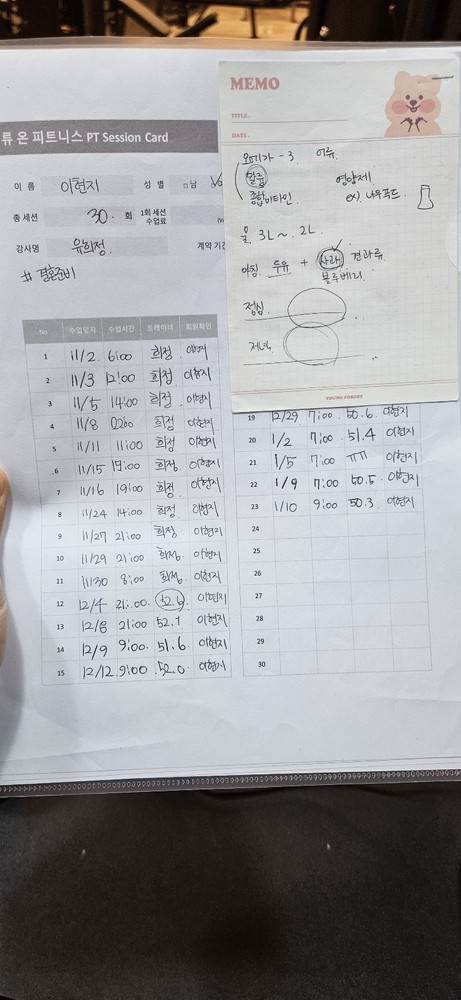 류 온 피트니스 PT Session Card
이 름 이현지 성 별 □남
총 세션 30. 회 1회 세션 수업료
강사명 유희정 계약기간
# 결혼준비
MEMO
TITLE.
DATE.
오메가-3. 어류.
종합비타민. 영양제
ex) 나우푸드.
물. 3L ~. 2L.
아침. 두유 + 사과 견과류.
블루베리.
점심.
저녁.
YOUNG FOREST
No. 수업일자 수업시간 트레이너 회원확인
1 11/2 6:00 희정 이현지
2 11/3 12:00 희정 이현지
3 11/5 14:00 희정 이현지
4 11/8 희정 이현지
5 11/11 11:00 희정 이현지
6 11/15 희정 이현지
7 11/16 19:00 희정 이현지
8 11/24 14:00 희정 이현지
9 11/27 21:00 희정 이현지
10 11/29 21:00 희정 이현지
11 11/30 8:00 희정 이현지
12 12/4 21:00. 52.6 이현지
13 12/8 21:00 52.1 이현지
14 12/9 9:00. 51.6 이현지
15 12/12 9:00 52.0 이현지
19 12/29 7:00 50.6. 이현지
20 1/2 7:00 51.4 이현지
21 1/5 7:00 ㅠㅠ 이현지
22 1/9 7:00 50.5 이현지
23 1/10 9:00 50.3 이현지
24
25
26
27
28
29
30